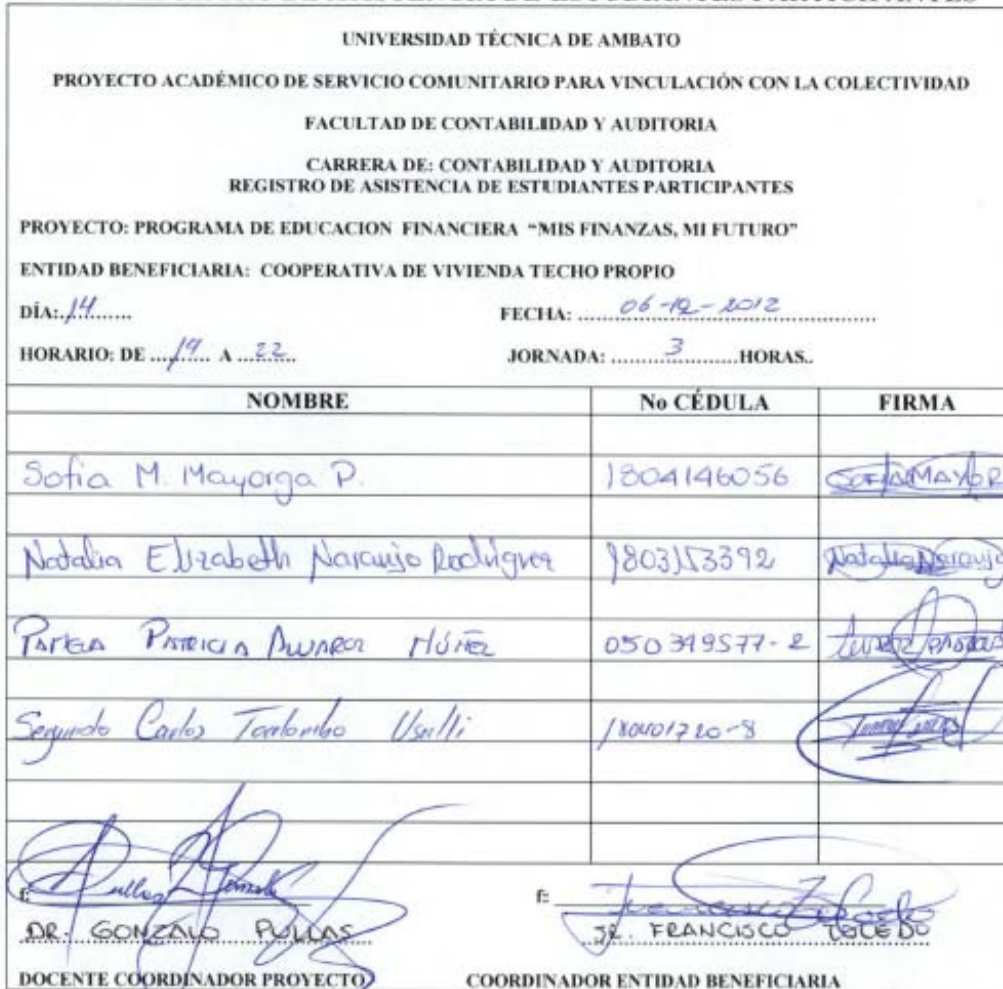 UNIVERSIDAD TÉCNICA DE AMBATO
PROYECTO ACADÉMICO DE SERVICIO COMUNITARIO PARA VINCULACIÓN CON LA COLECTIVIDAD
FACULTAD DE CONTABILIDAD Y AUDITORIA
CARRERA DE: CONTABILIDAD Y AUDITORIA
REGISTRO DE ASISTENCIA DE ESTUDIANTES PARTICIPANTES
PROYECTO: PROGRAMA DE EDUCACION FINANCIERA “MIS FINANZAS, MI FUTURO”
ENTIDAD BENEFICIARIA: COOPERATIVA DE VIVIENDA TECHO PROPIO
DÍA: 14 FECHA: 06-12-2012
HORARIO: DE 19 A 22 JORNADA: 3 HORAS..
NOMBRE No CÉDULA FIRMA
Sofia M. Mayorga P. 1804146056 SOFIA MAYOR
Natalia Elizabeth Naranjo Rodríguez 1803153392 Natalia Naranjo
PATRICIA NÚÑEZ 050349577-2
Segundo Carlos
f: f:
DR. GONZALO PULLAS SR. FRANCISCO TOLEDO
DOCENTE COORDINADOR PROYECTO COORDINADOR ENTIDAD BENEFICIARIA